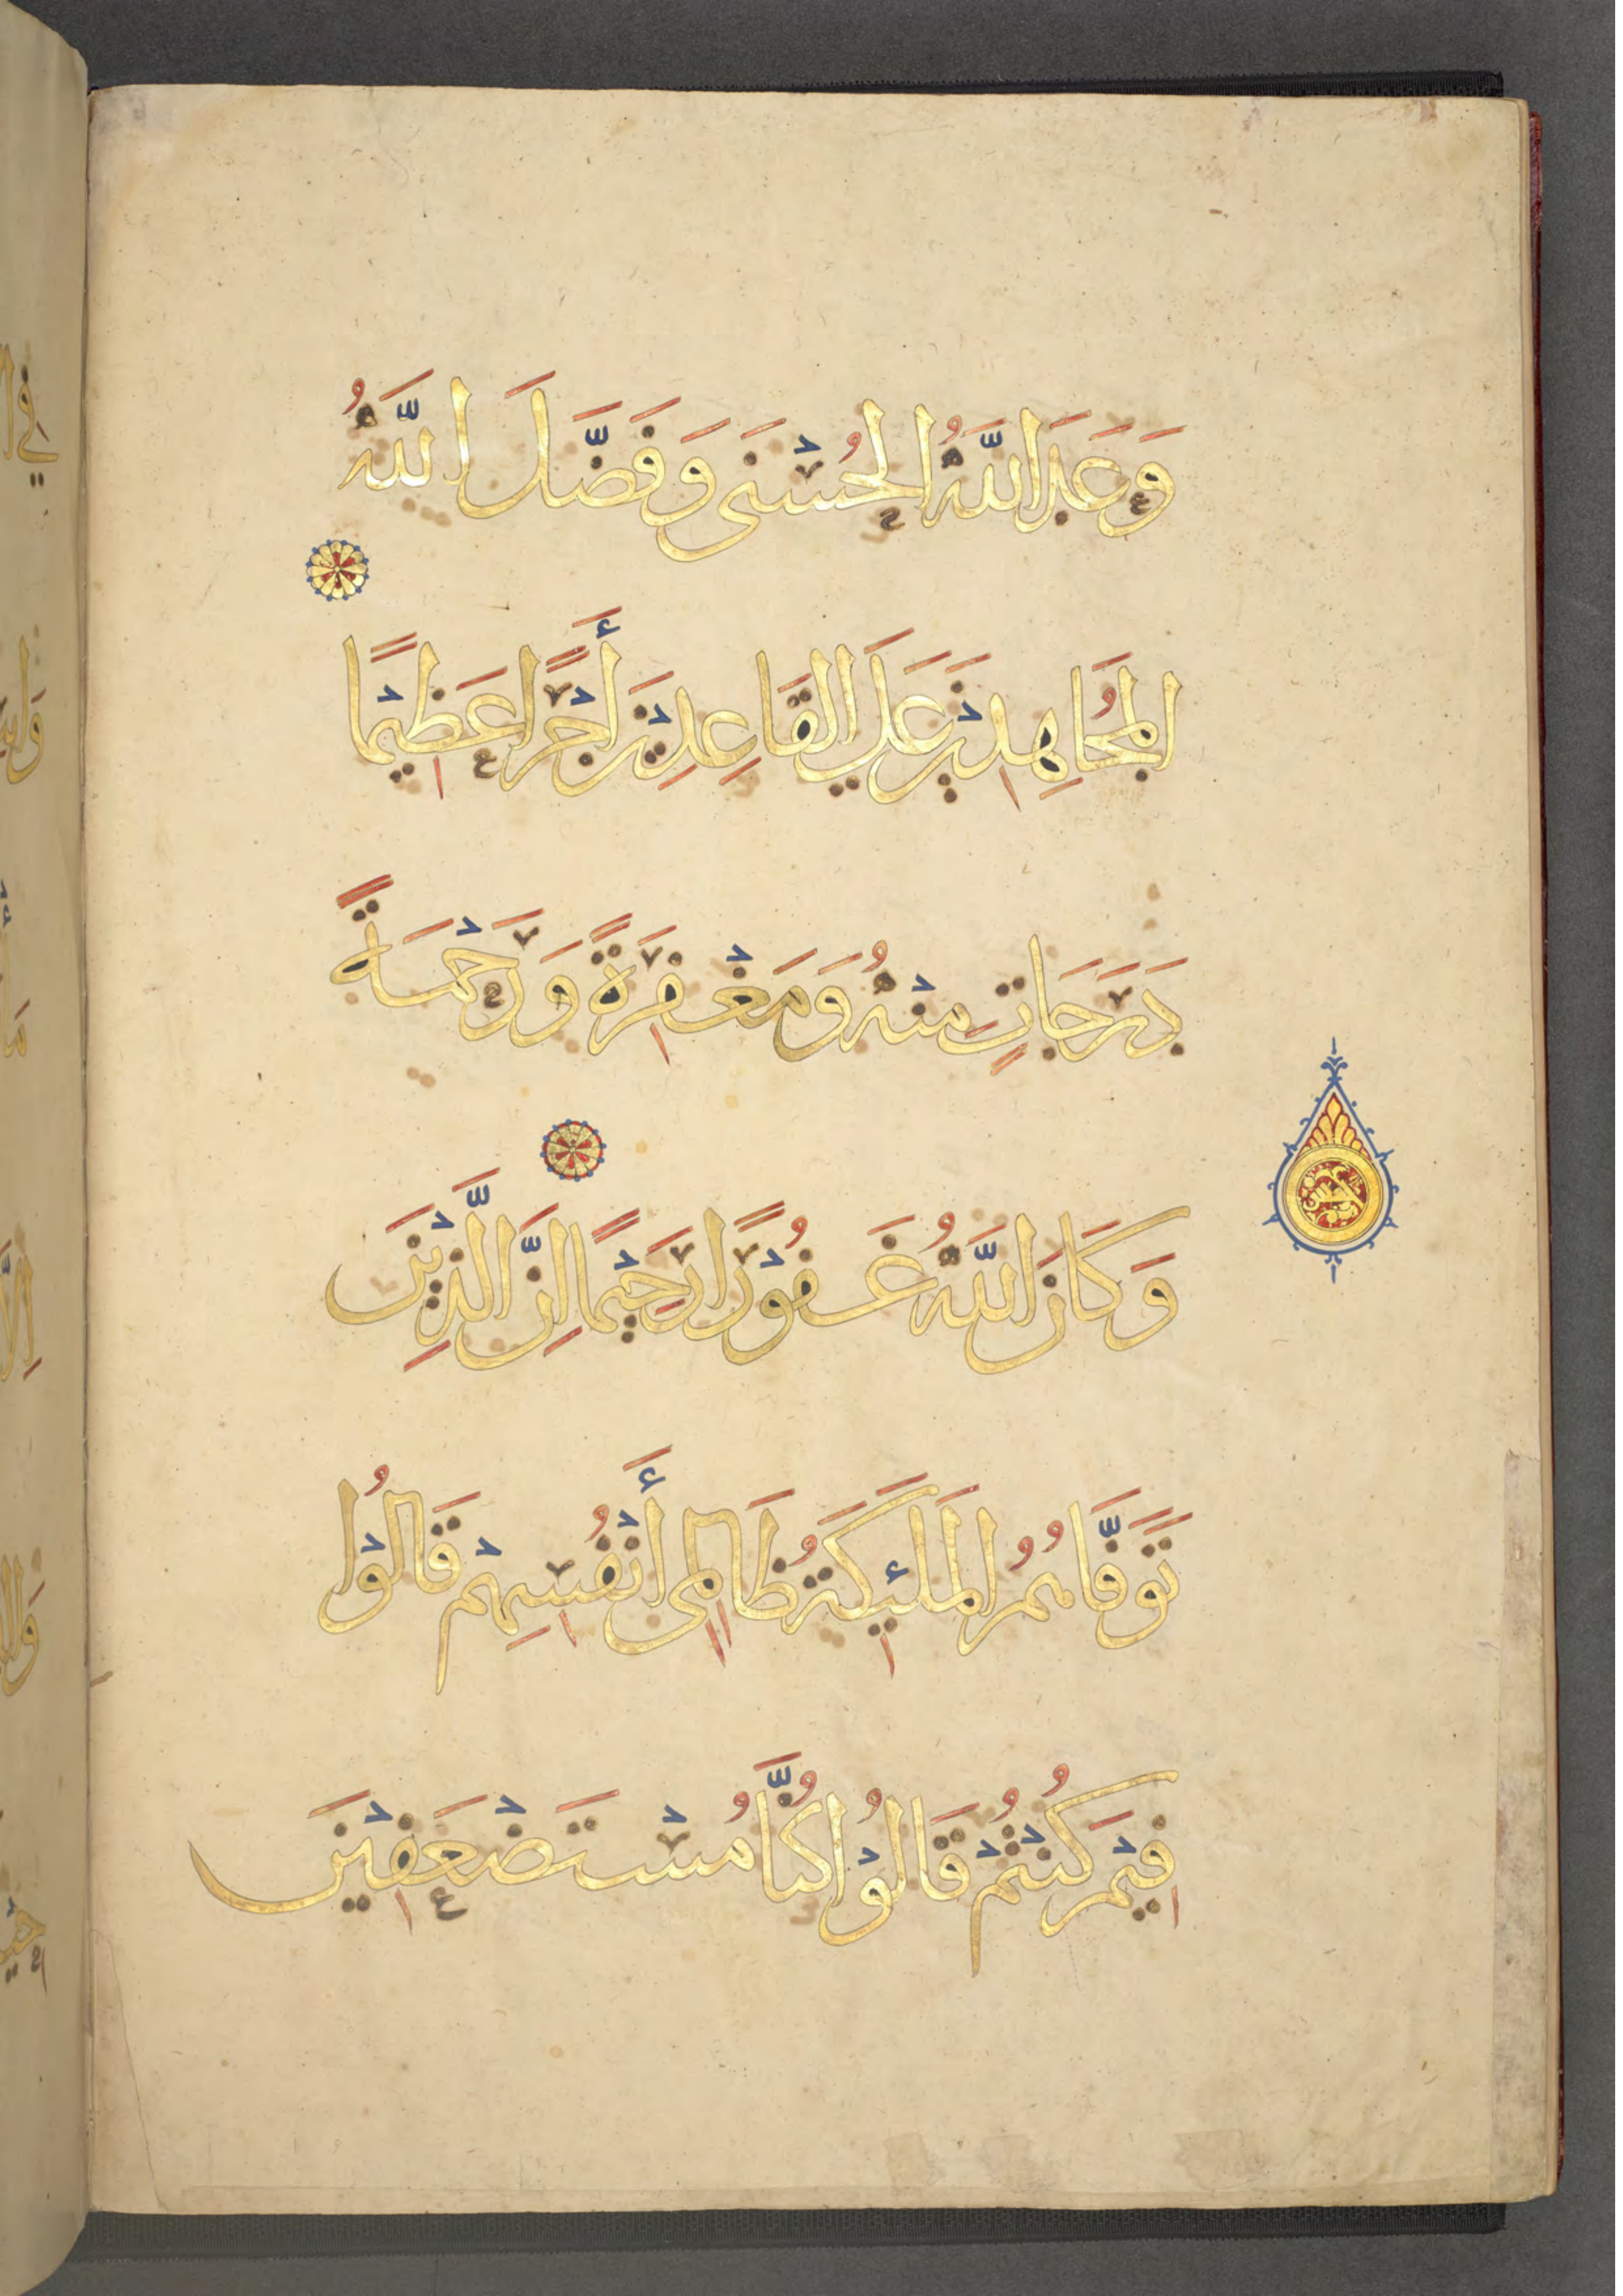 وَعَدَ اللَّهُ الْحُسْنَى وَفَضَّلَ اللَّهُ
الْمُجَاهِدِيْنَ عَلَى الْقَاعِدِيْنَ أَجْرًا عَظِيْمًا
دَرَجَاتٍ مِنْهُ وَمَغْفِرَةً وَرَحْمَةً
وَكَانَ اللَّهُ غَفُوْرًا رَحِيْمًا اِنَّ الَّذِيْنَ
تَوَفَّاهُمُ الْمَلَئِكَةُ ظَالِمِى أَنْفُسِهِمْ قَالُوْا
فِيْمَ كُنْتُمْ قَالُوْا كُنَّا مُسْتَضْعَفِيْنَ